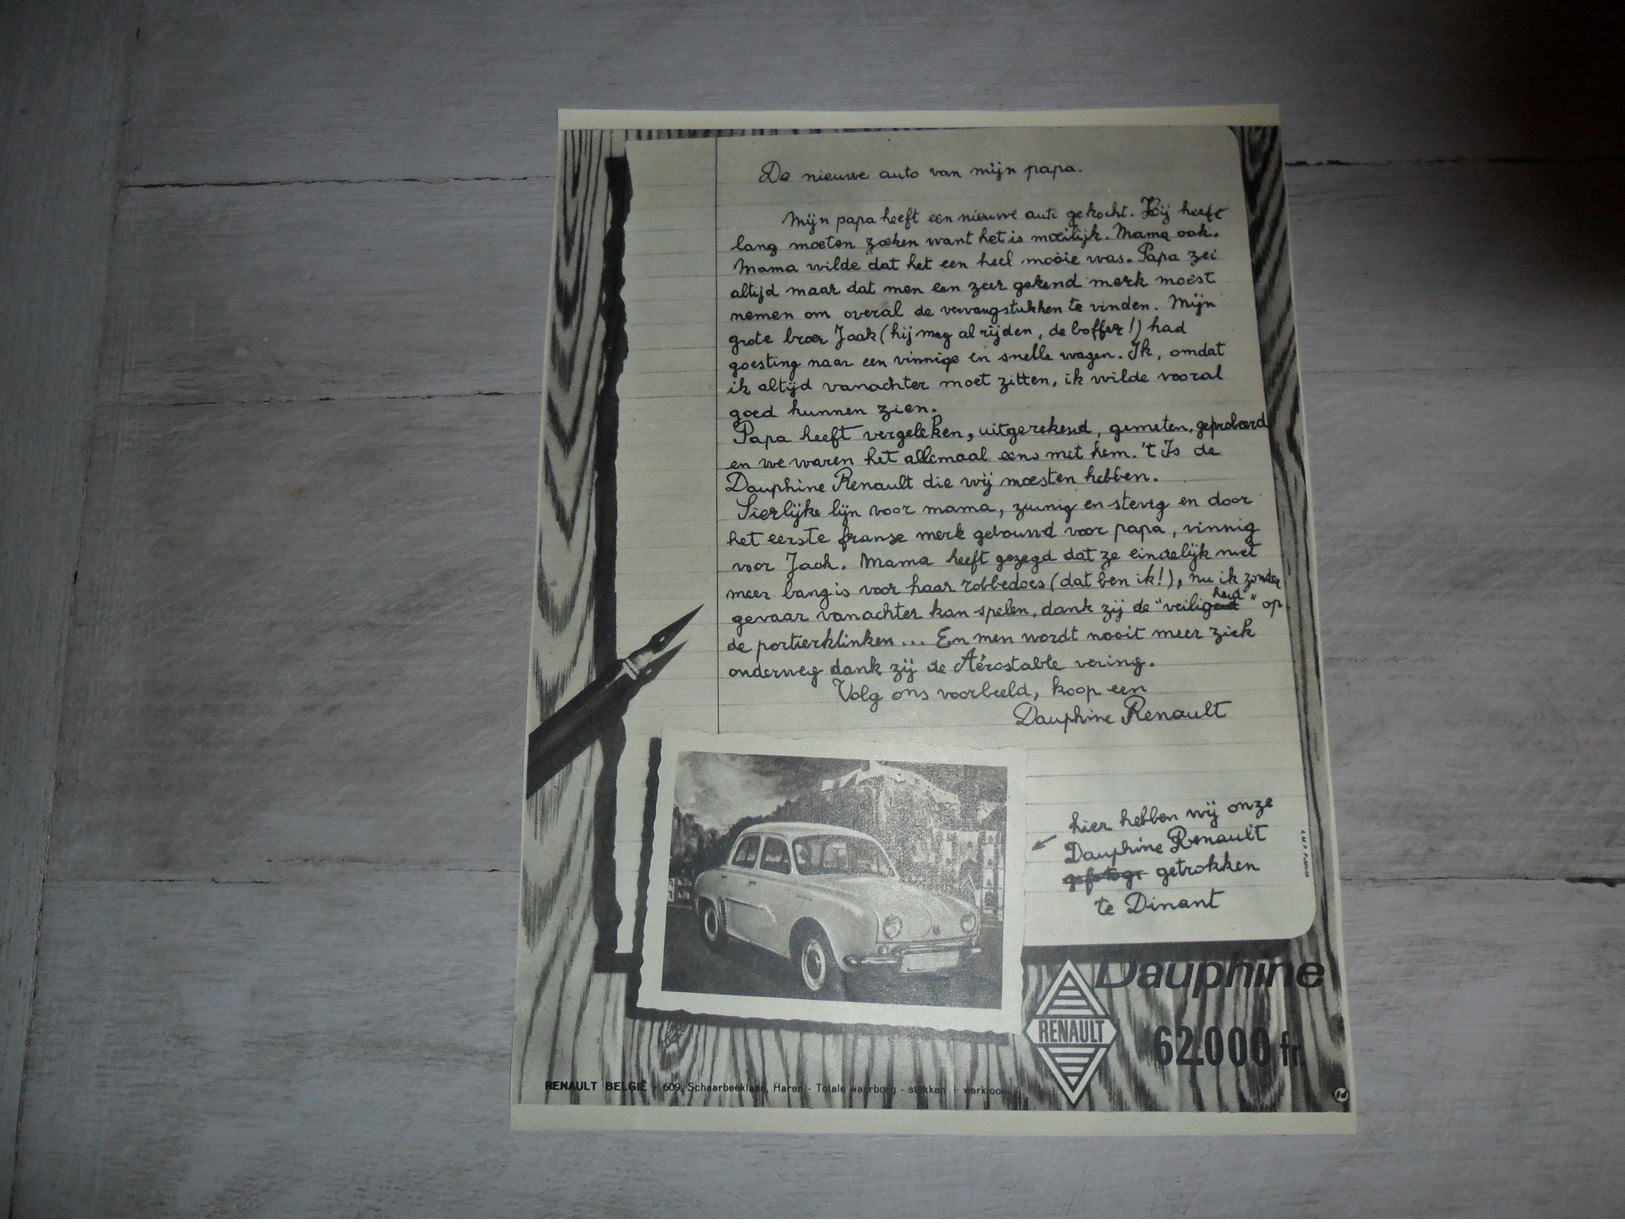 De nieuwe auto van mijn papa.
Mijn papa heeft een nieuwe auto gekocht. Hij heeft
lang moeten zoeken want het is moeilijk. Mama ook.
Mama wilde dat het een heel mooie was. Papa zei
altijd maar dat men een zeer gekend merk moest
nemen om overal de vervangstukken te vinden. Mijn
grote broer Jaak (hij mag al rijden, de boffer!) had
goesting naar een vinnige en snelle wagen. Ik, omdat
ik altijd vanachter moet zitten, ik wilde vooral
goed kunnen zien.
Papa heeft vergeleken, uitgerekend, gemeten, geprobeerd
en we waren het allemaal eens met hem. 't Is de
Dauphine Renault die wij moesten hebben.
Sierlijke lijn voor mama, zuinig en stevig en door
het eerste franse merk gebouwd voor papa, vinnig
voor Jaak. Mama heeft gezegd dat ze eindelijk niet
meer bang is voor haar robbedoes (dat ben ik!), nu ik zonder
gevaar vanachter kan spelen, dank zij de "veiligheid" op
de portierklinken... En men wordt nooit meer ziek
onderweg dank zij de Aérostable vering.
Volg ons voorbeeld, koop een
Dauphine Renault
hier hebben wij onze
Dauphine Renault
gefotogr getrokken
te Dinant
Dauphine
RENAULT
62.000 fr.
RENAULT BELGIË - 609, Schaarbeeklaan, Haren - Totale waarborg - stukken + werkloon